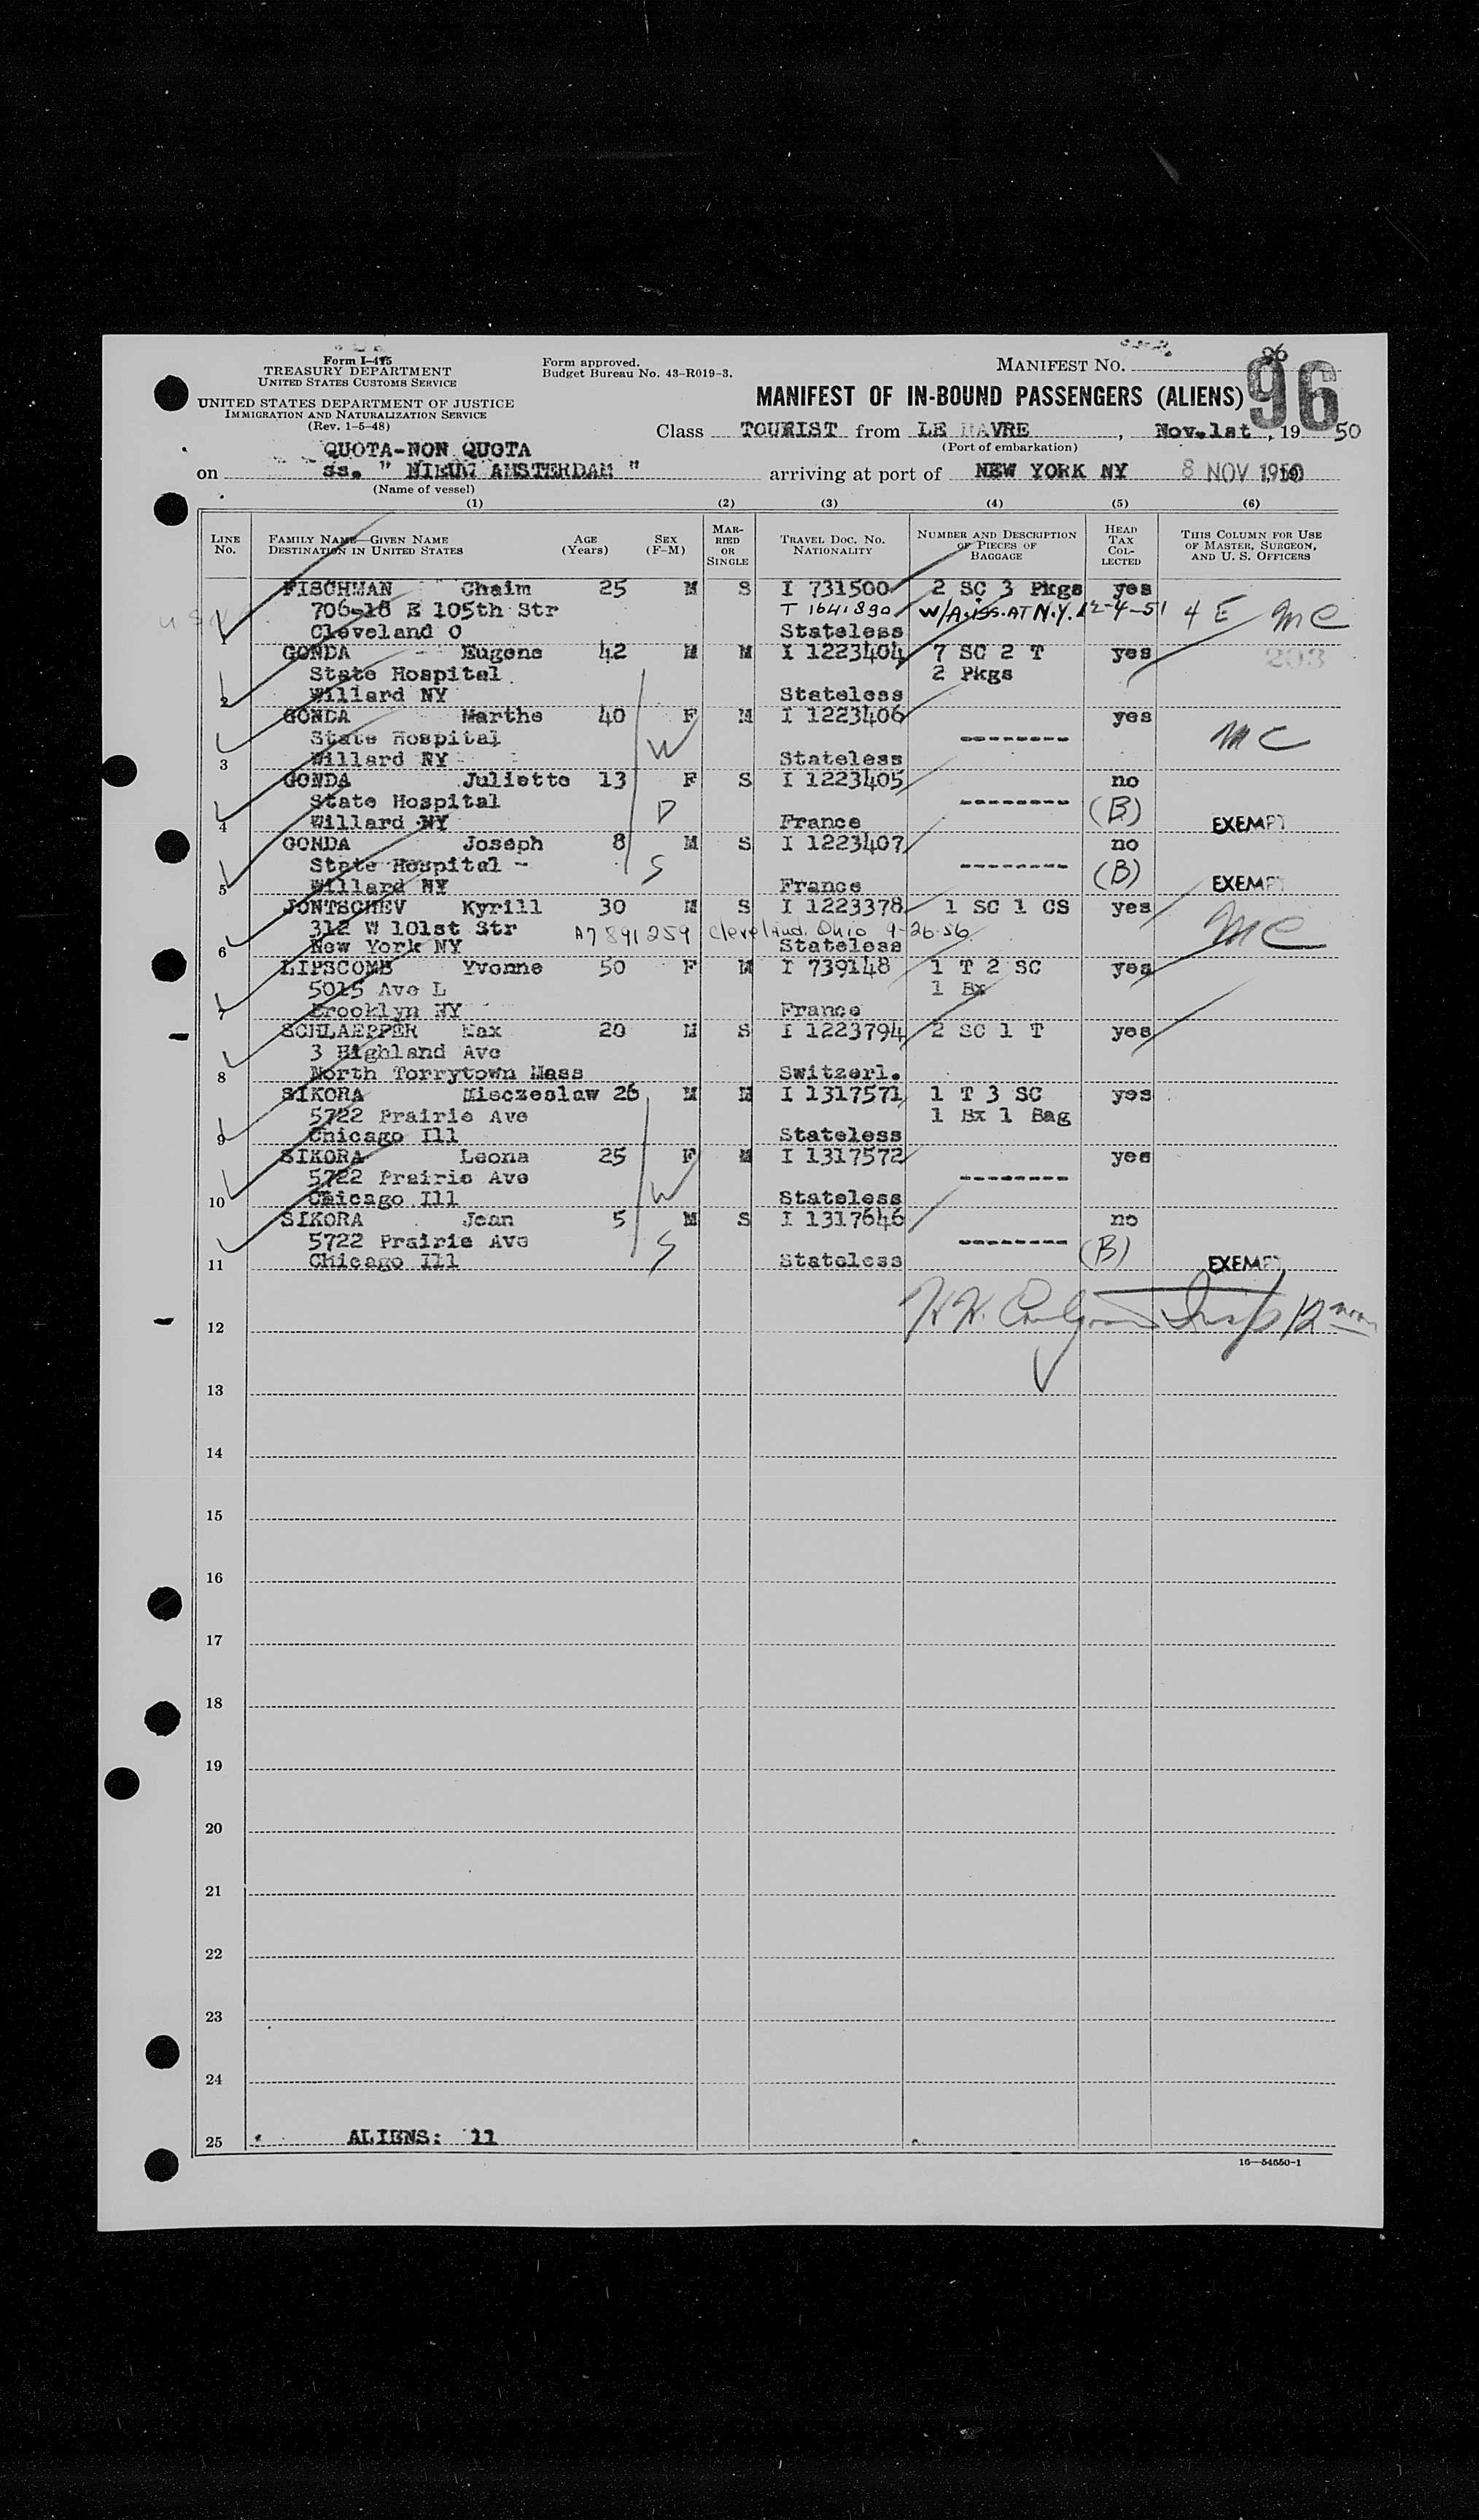 Form I-415
TREASURY DEPARTMENT
UNITED STATES CUSTOMS SERVICE
UNITED STATES DEPARTMENT OF JUSTICE
IMMIGRATION AND NATURALIZATION SERVICE
(Rev. 1-5-48)
Form approved.
Budget Bureau No. 43-R019-3.
MANIFEST NO.
96
96
MANIFEST OF IN-BOUND PASSENGERS (ALIENS)
Class TOURIST from LE HAVRE, Nov.1st, 19 50
(Port of embarkation)
QUOTA-NON QUOTA
on ss. " NIEUW AMSTERDAM " arriving at port of NEW YORK NY 8 NOV 1950
(Name of vessel)
(1) (2) (3) (4) (5) (6)
LINE No.
FAMILY NAME—GIVEN NAME
DESTINATION IN UNITED STATES
AGE (Years)
SEX (F-M)
MARRIED OR SINGLE
TRAVEL DOC. NO. NATIONALITY
NUMBER AND DESCRIPTION OF PIECES OF BAGGAGE
HEAD TAX COLLECTED
THIS COLUMN FOR USE OF MASTER, SURGEON, AND U. S. OFFICERS
FISCHMAN Chaim 25 M S I 731500 2 SC 3 Pkgs yes
706-18 E 105th Str T 1641890 W/A iss. AT N.Y. 12-4-51 4 E MC
1 Cleveland O Stateless
GONDA Eugene 42 M M I 1223404 7 SC 2 T yes 203
State Hospital 2 Pkgs
2 Willard NY Stateless
GONDA Marthe 40 F M I 1223406 yes
State Hospital W -------- MC
3 Willard NY Stateless
GONDA Juliette 13 F S I 1223405 no
State Hospital D -------- (B)
4 Willard NY France EXEMPT
GONDA Joseph 8 M S I 1223407 no
State Hospital - S -------- (B)
5 Willard NY France EXEMPT
JONTSCHEV Kyrill 30 M S I 1223378 1 SC 1 CS yes
312 W 101st Str A7 891259 Cleveland. Ohio 9-26-56 MC
6 New York NY Stateless
LIPSCOMB Yvonne 50 F M I 739148 1 T 2 SC yes
5015 Ave L 1 Bx
7 Brooklyn NY France
SCHLAEPPER Max 20 M S I 1223794 2 SC 1 T yes
3 Highland Ave
8 North Torrytown Mass Switzerl.
SIKORA Misczeslaw 26 M M I 1317571 1 T 3 SC yes
5722 Prairie Ave 1 Bx 1 Bag
9 Chicago Ill Stateless
SIKORA Leona 25 F M I 1317572 yes
5722 Prairie Ave W --------
10 Chicago Ill Stateless
SIKORA Jean 5 M S I 1317646 no
5722 Prairie Ave S -------- (B)
11 Chicago Ill Stateless EXEMPT
12 Insp 12 noon
13
14
15
16
17
18
19
20
21
22
23
24
25 ALIENS: 11
16—54650-1